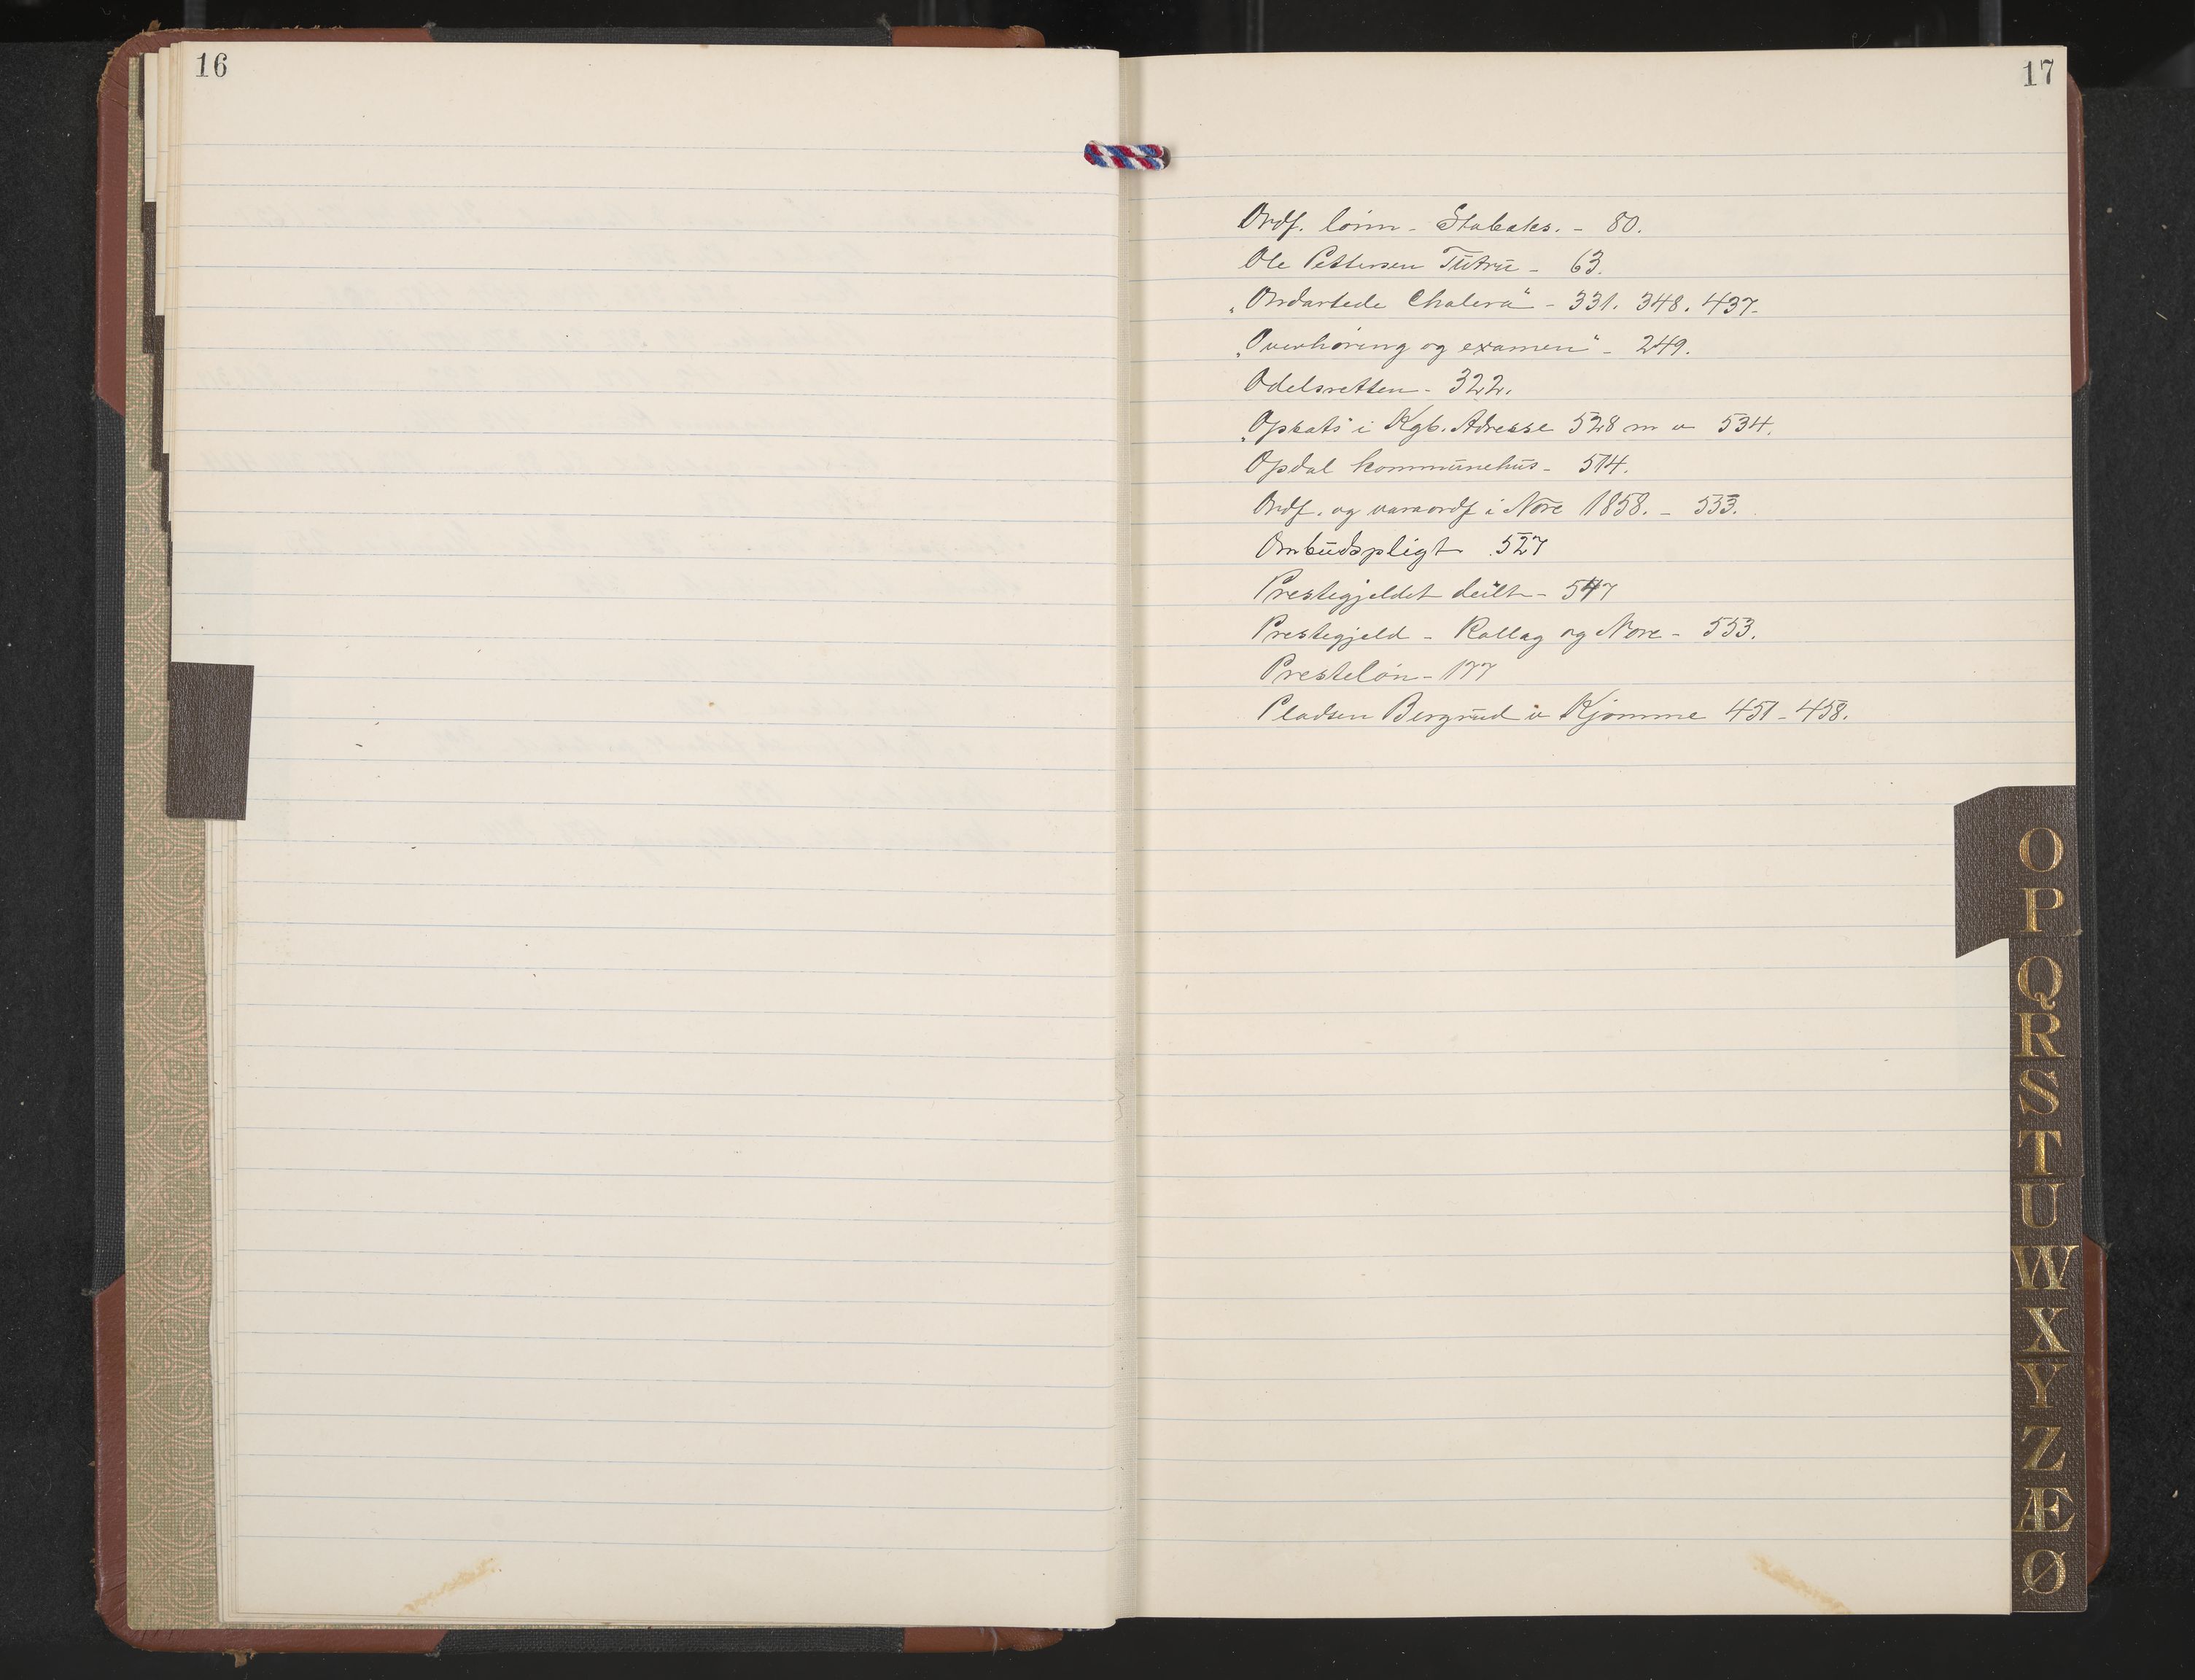 16
17
Ordf. lønn - Stabæks. - 80.
Ole Pettersen Tutru - 63.
„Ondartede Cholera“ - 331. 348. 437.
„Overhøring og examen“ - 249.
Odelsretten - 322.
„Opsats i Kgb. Adresse 528 m v 534.
Opdal kommunehus - 514.
Ordf. og varaordf i Nore 1858. - 553.
Ombudspligt 527
Prestegjeldet deilt - 547
Prestegjeld - Rollag og Nore - 553.
Presteløn - 177
Pladsen Bergrud u Kjømme 451 - 458.
O
P
Q
R
S
T
U
W
X
Y
Z
Æ
Ø